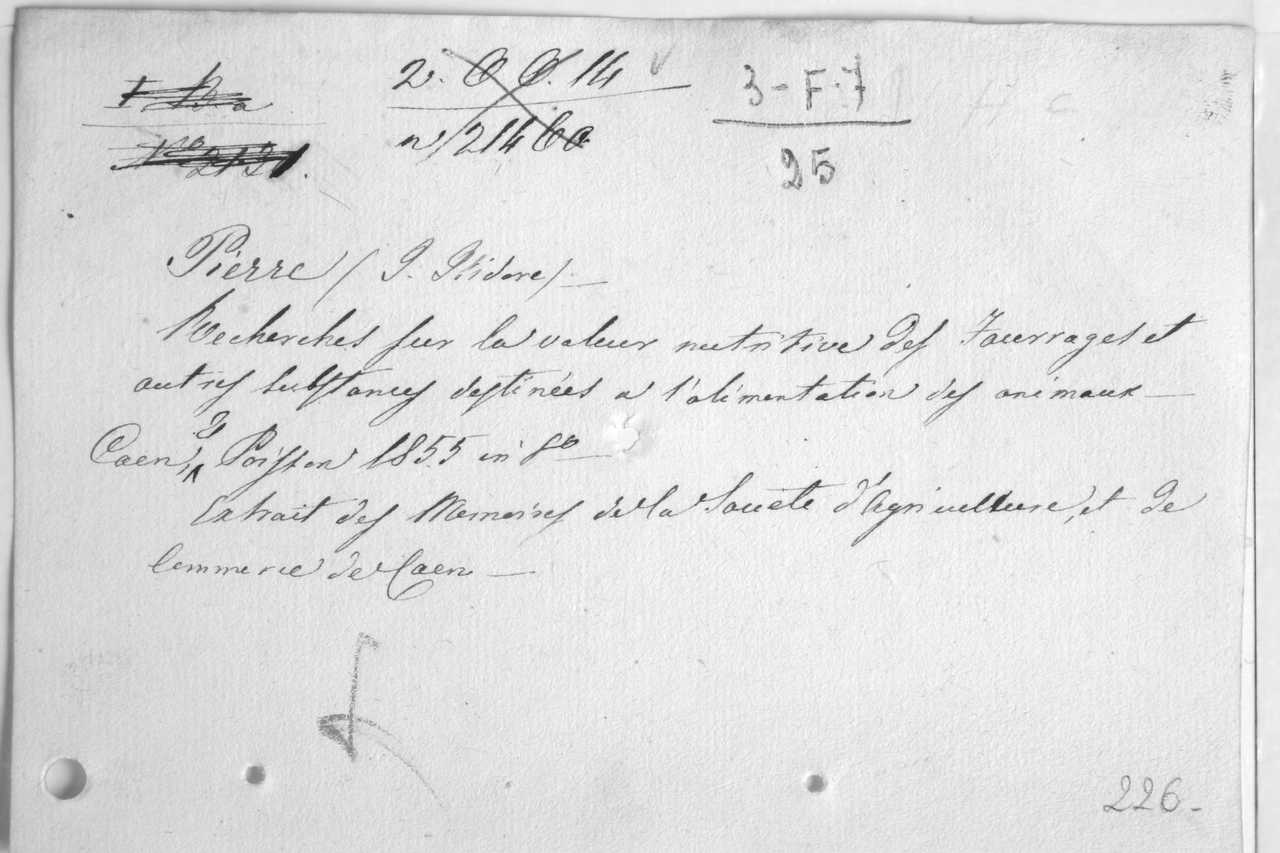 2. O O. 14
n° 21460
3-F-7
25
Pierre (J. Isidore) —
Recherches sur la valeur nutritive des Fourrages et
autres substances destinées a l'alimentation des animaux —
Caen, Poisson 1855 in 8° —
Extrait des Memoires de la Societe d'Agriculture, et de
Commerce de Caen —
226-